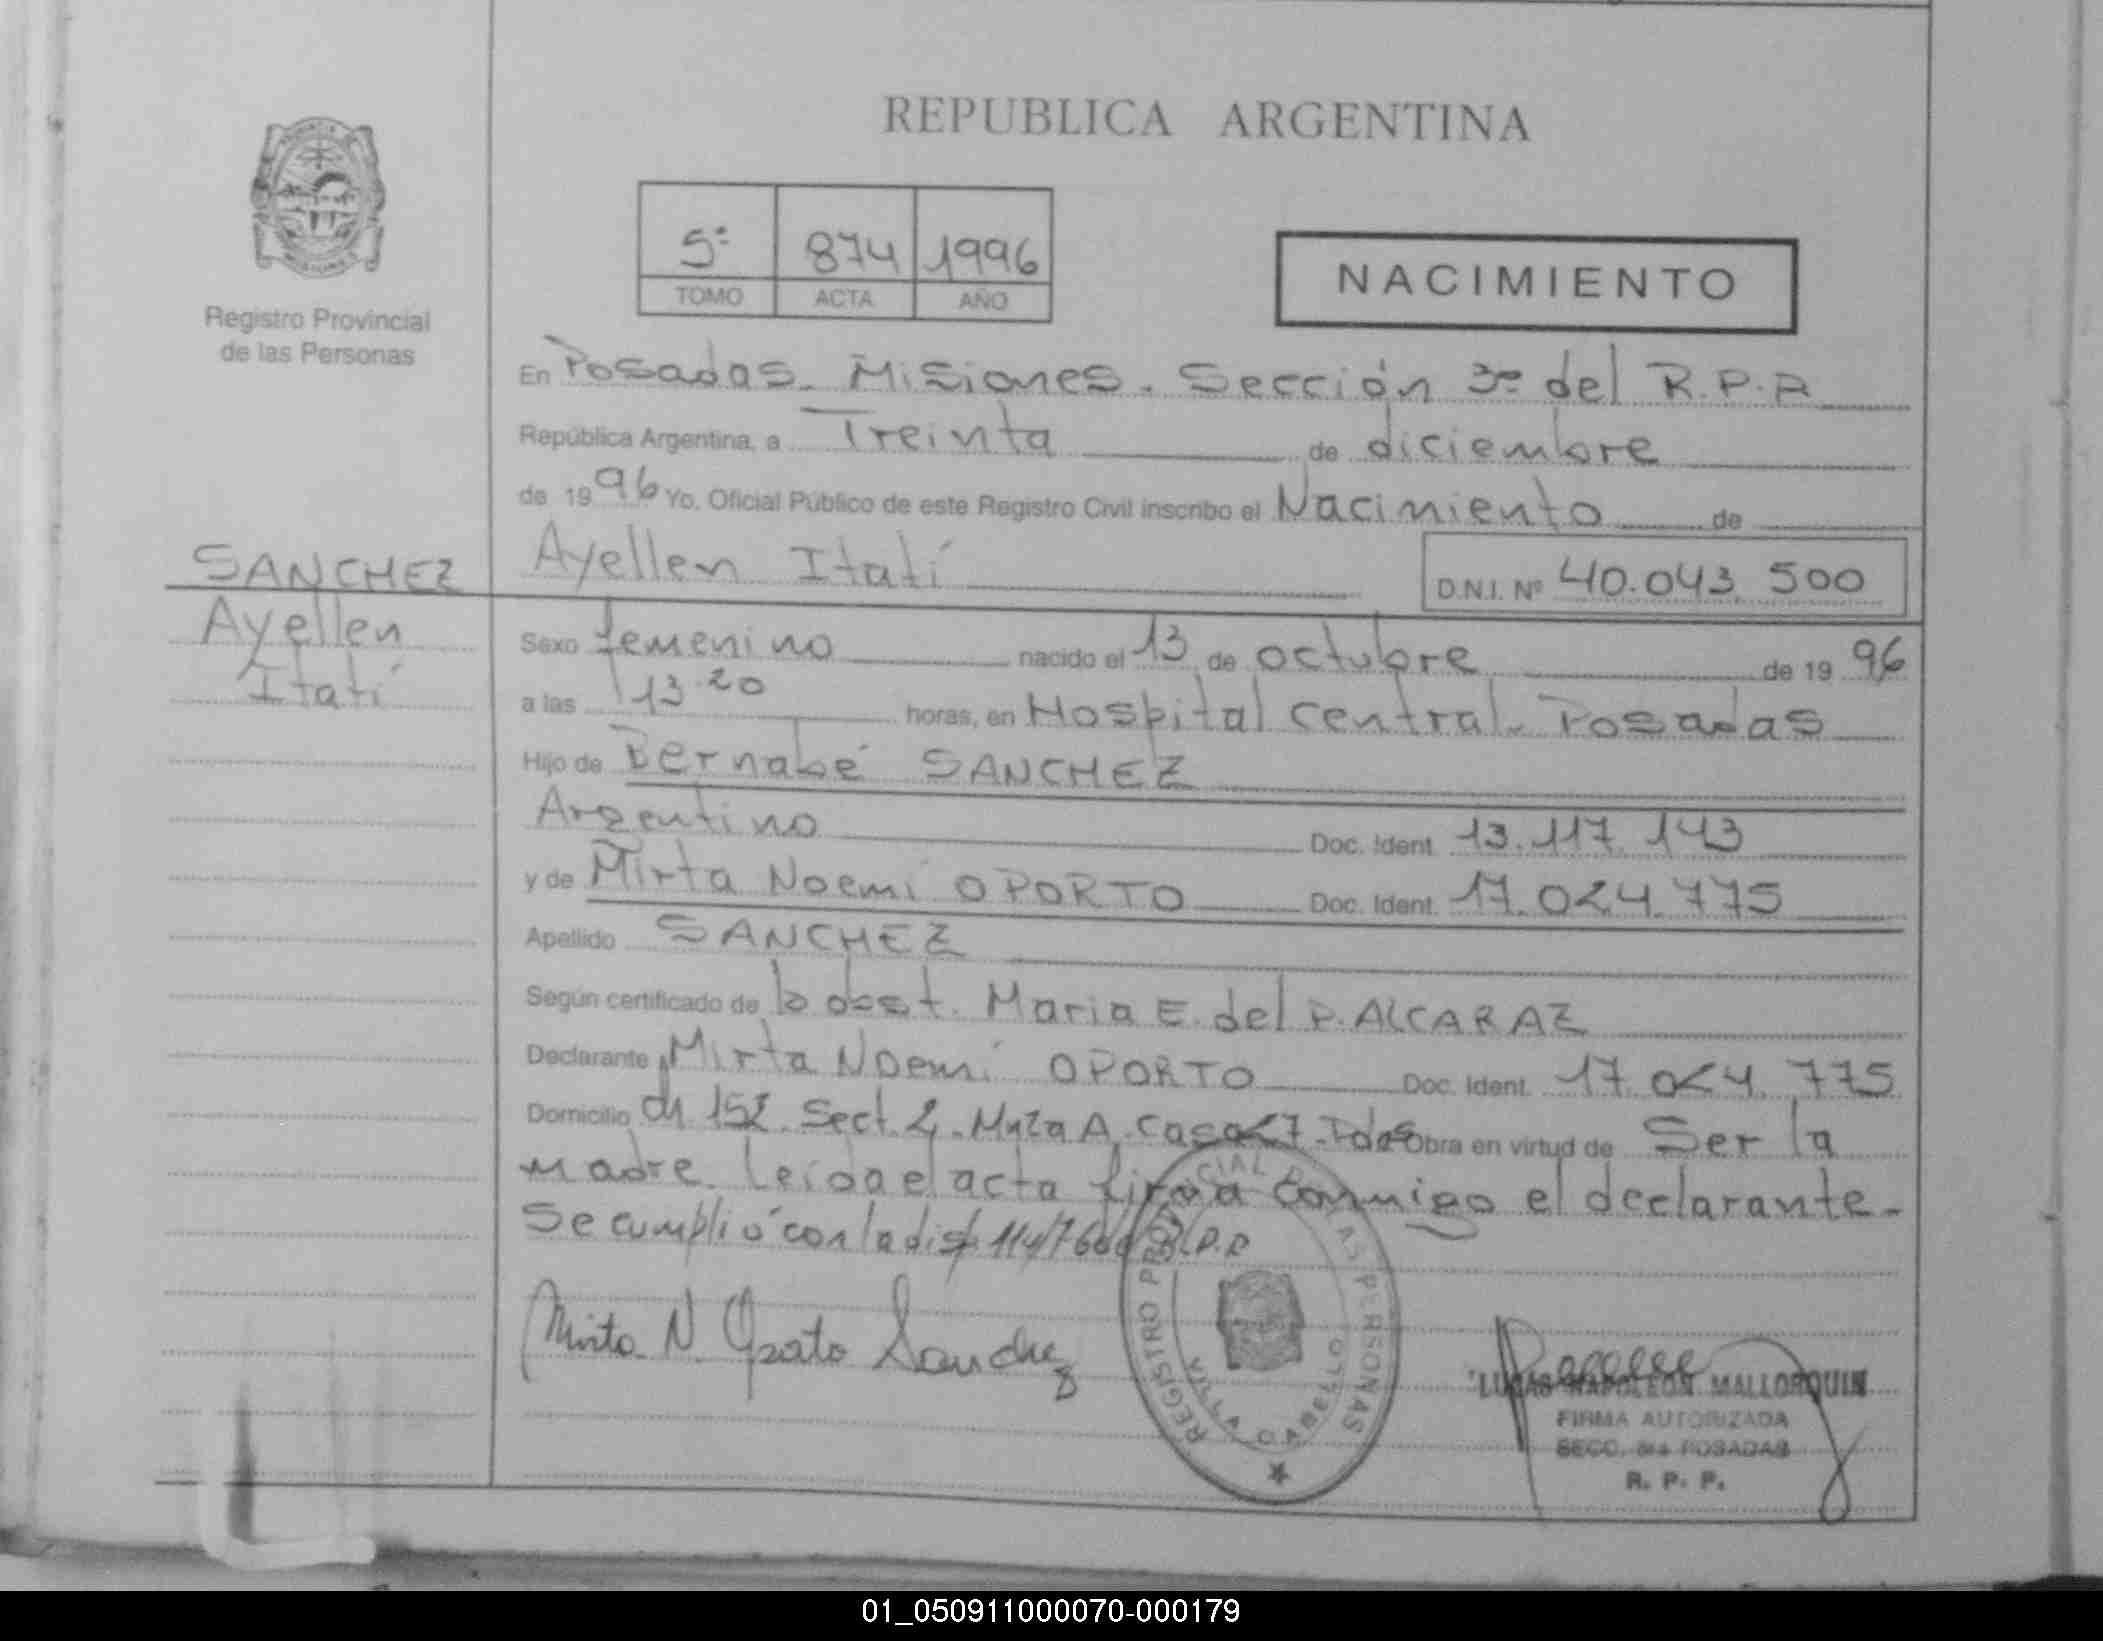 REPUBLICA ARGENTINA
5º 874 1996
TOMO ACTA AÑO
NACIMIENTO
Registro Provincial
de las Personas
En Posadas. Misiones. Sección 3º del R.P.P
República Argentina, a Treinta de diciembre
de 1996 Yo, Oficial Público de este Registro Civil inscribo el Nacimiento de
SANCHEZ
Ayellen
Itatí
Ayellen Itatí D.N.I. Nº 40.043.500
Sexo femenino nacido el 13 de octubre de 1996
a las 13 20 horas, en Hospital central. Posadas
Hijo de Bernabé SANCHEZ
Argentino Doc. Ident. 13.117.143
y de Mirta Noemí OPORTO Doc. Ident. 17.024.775
Apellido SANCHEZ
Según certificado de la obst. Maria E. del P. ALCARAZ
Declarante Mirta Noemí OPORTO Doc. Ident. 17.024.775
Domicilio Ch 152. Sect. 2. Mnza A. Casa 27. Pdas Obra en virtud de Ser la
madre. Leída el acta firma conmigo el declarante.
Se cumplió con la disp. R.P.P
Mirta N. Oporto Sanchez
REGISTRO PROVINCIAL DE LAS PERSONAS
VILLA CABELLO
LUCAS NAPOLEON MALLORQUIN
FIRMA AUTORIZADA
SECC. 3ra POSADAS
R. P. P.
01_050911000070-000179